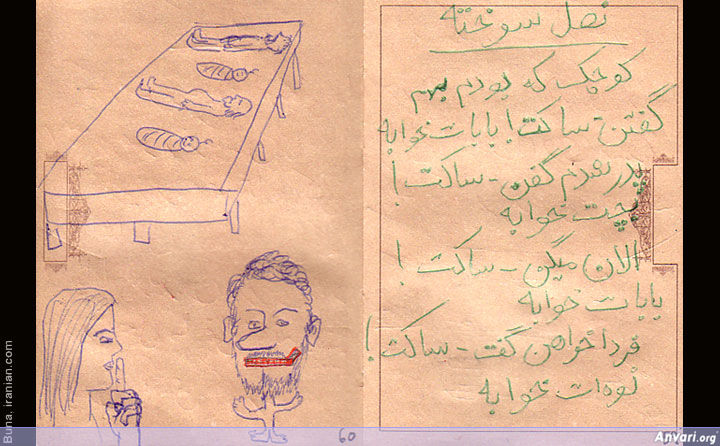 نسل سوخته
کوچک که بودم بهم
گفتن - ساکت! بابات خوابه
پدر شدم گفتن - ساکت!
بچت خوابه
الان میگن - ساکت!
بابات خوابه
فردا خواهن گفت - ساکت!
نوه‌ات خوابه
60
Buna, iranian.com
Anvari.org